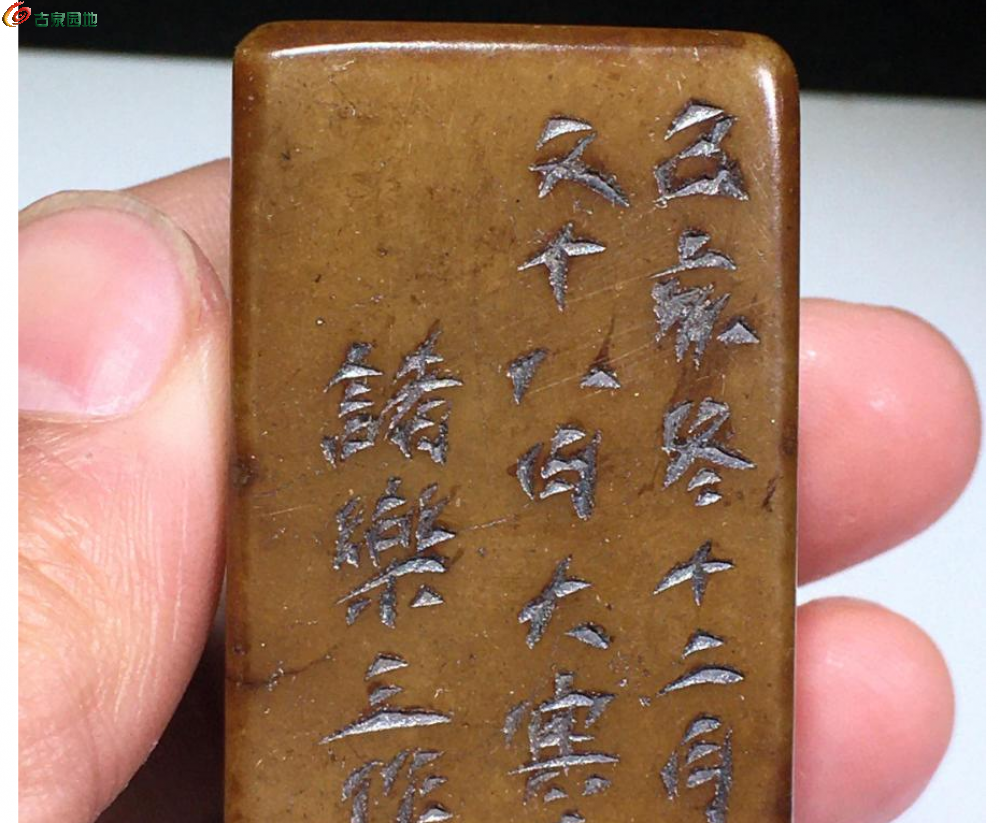 古泉园地
己亥冬十二月
又十八日大寒
諸樂三作